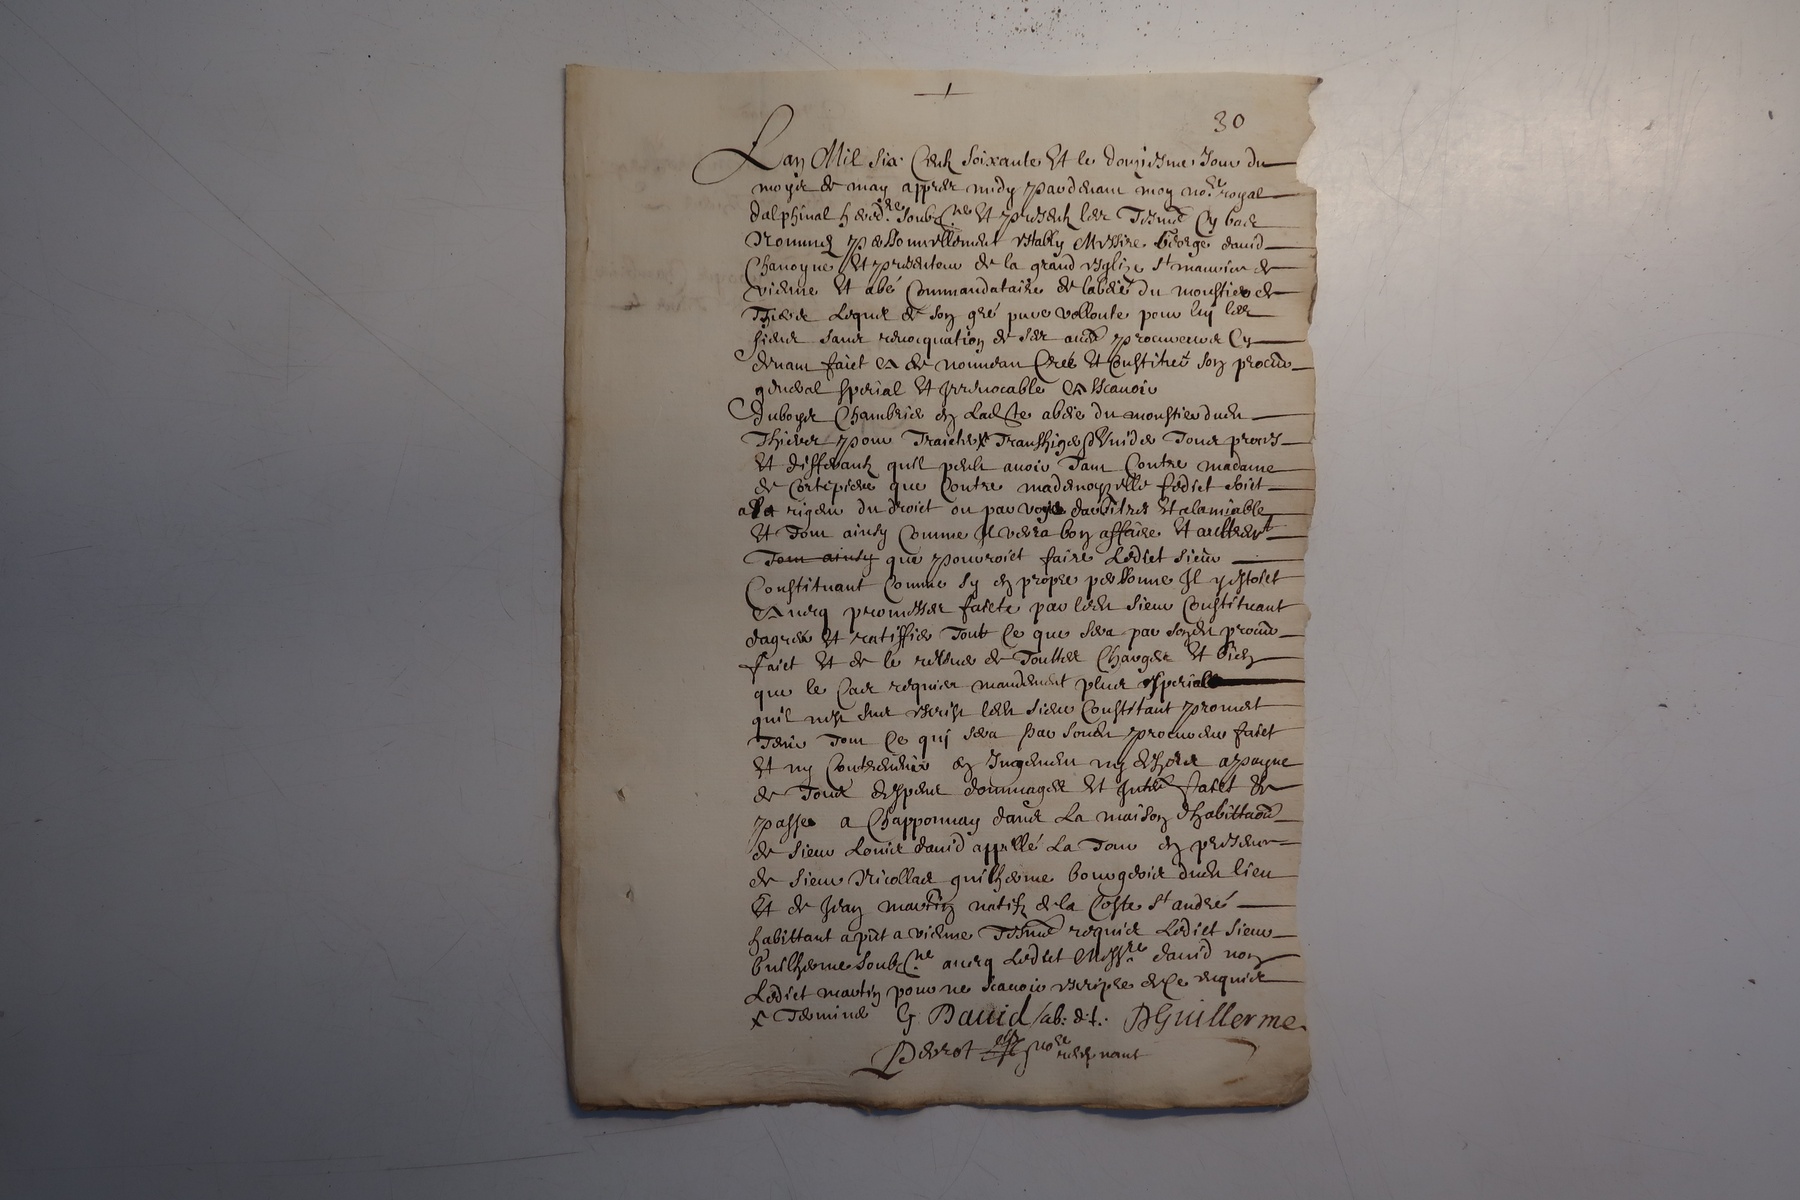 30
Lan Mil six Cent soixante Et le dousiesme Jour du
moys de may appres midy pardevant moy no.re royal
dalphinal hered.re soub.ne Et presents les Tesm. Cy bas
Nommes personnellement estably Messire George david
Chanoyne Et presenteur de la grand esglize st maurice de
vienne Et abé Commandataire de labeie du monstier de
Thiers Lequel de son gré pure vollonte pour luy les
siens sans revocquation de ses au. procureurs Cy
devant faict Et de nouveau Créé Et Constitué son procur
general special Et Irrevocable Et Scavoir
duboys Chambrier en Lad.te abeie du monstier dud
Thiers pour Traicter Transhiger vuider Tous proces
Et differants quil peult avoir Tant Contre madame
de Cortepiere que Contre madamoyselle ledict soict
a la rigeur du droict ou par voye darbitres Et alamiable
Et Tout ainsy Comme Il verra bon affaire Et
Tout ainsy que pourroict faire Ledict sieur
Constituant Comme sy en propre personne Il y estoict
Avecq promesses faicte par led sieur Constituant
dagreer Et ratiffier Tout Ce que sera par sond procur
faict Et de le relever de Touttes Charges Et bien
que le Cas requier mandement plus special
quil nest sus escript led sieur Constitant promet
Tenir Tout Ce qui sera par sond procureur faict
Et ny Contrevenir en Jugement ny dehors apayne
de Tous despens dommages Et Inter faict Et
passe a Chapponnay dans La maison dhabittaon
de sieur Louis david appellé La Tour en presence
de sieur Nicollas guilherme bourgeois dud lieu
Et de Jean martin natif de la Coste st andré
habittant apnt a vienne Tesm requis Ledict sieur
Guilherme soub.ne avecq Ledict Mess.re david non
Ledict martin pour ne scavoir escripre de Ce enquis
G David ab. d. t. DGuillerme
Perrot no.re